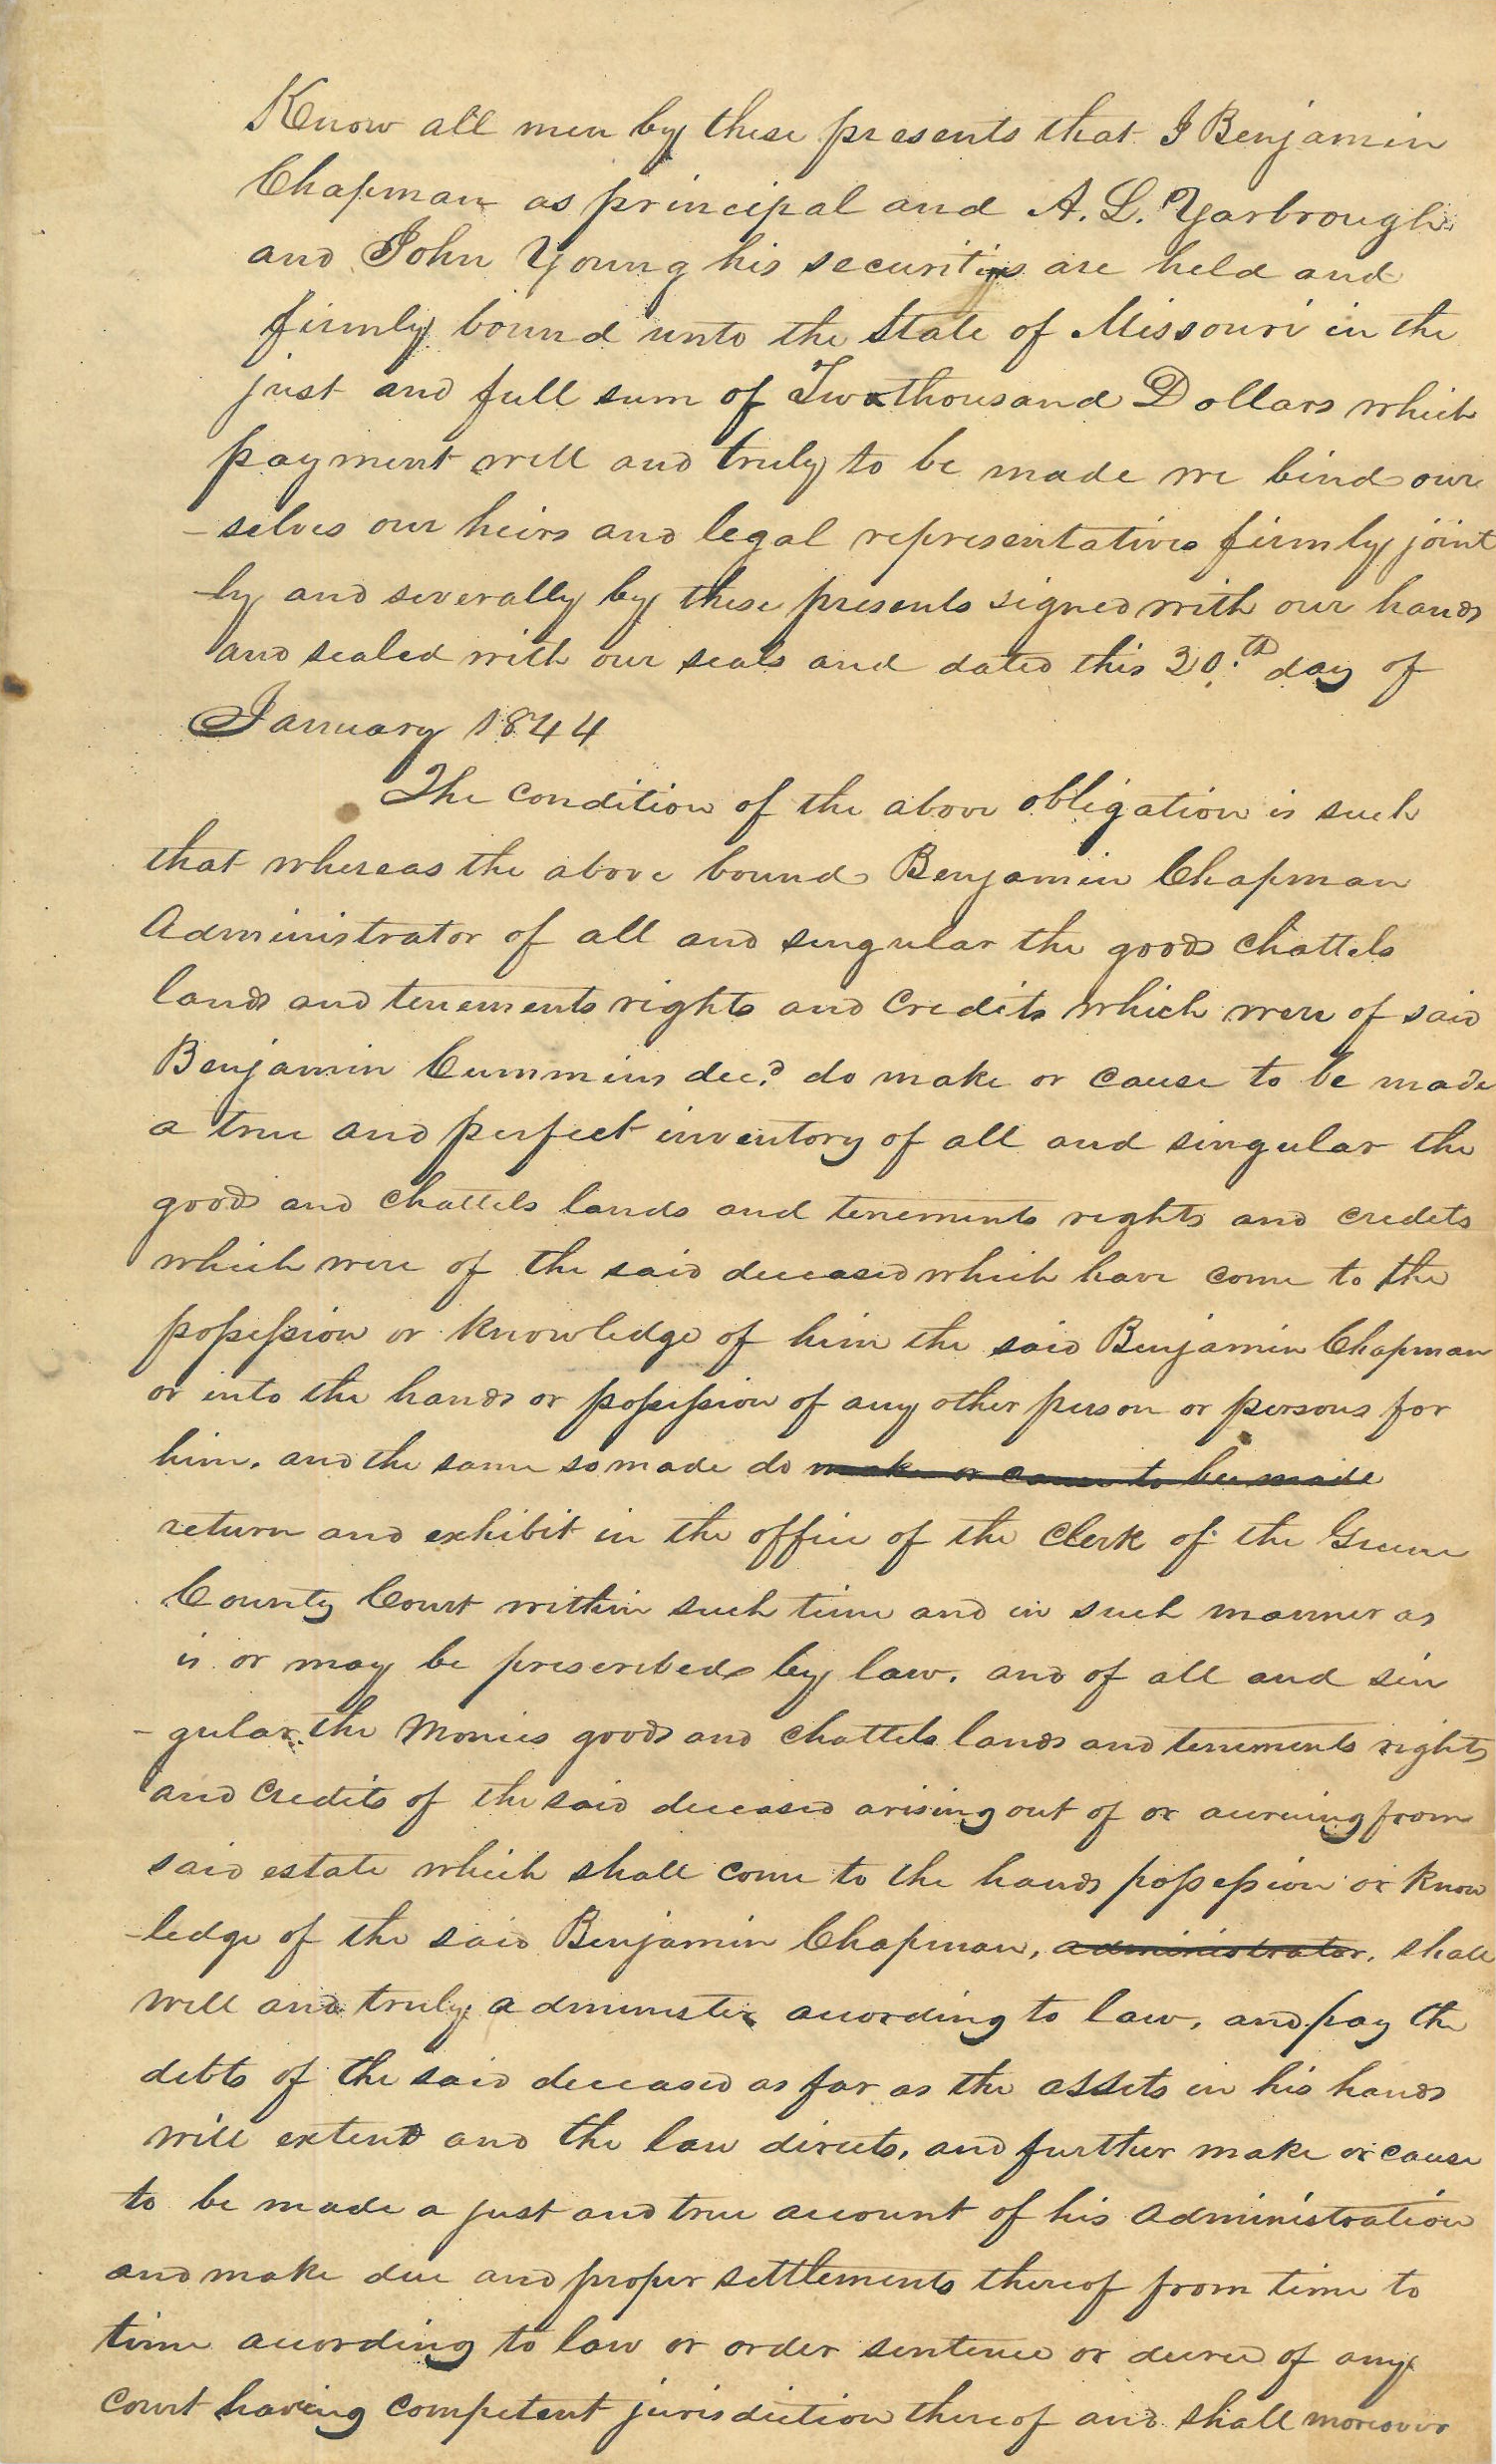 Know all men by these presents that I Benjamin
Chapman as principal and A. L. Yarbrough
and John Young his securities are held and
firmly bound unto the State of Missouri in the
just and full sum of Two thousand Dollars which
payment well and truly to be made we bind our
-selves our heirs and legal representatives firmly joint
-ly and severally by these presents signed with our hands
and sealed with our seals and dated this 30.th day of
January 1844
The condition of the above obligation is such
that whereas the above bound Benjamin Chapman
Administrator of all and singular the goods Chattels
lands and tenements rights and Credits which were of said
Benjamin Cummins decd. do make or cause to be made
a true and perfect inventory of all and singular the
goods and Chattels lands and tenements rights and credits
which were of the said deceased which have come to the
possession or knowledge of him the said Benjamin Chapman
or into the hands or possession of any other person or persons for
him. and the same so made do make or cause to be made
return and exhibit in the office of the Clerk of the Greene
County Court within such time and in such manner as
is or may be prescribed by law. and of all and sin
-gular the Monies goods and Chattels lands and tenements rights
and Credits of the said deceased arising out of or accruing from
said estate which shall come to the hands possession or know
-ledge of the said Benjamin Chapman, administrator, shall
well and truly administer according to law, and pay the
debts of the said deceased as far as the assets in his hands
will extend and the law directs, and further make or cause
to be made a just and true account of his administration
and make due and proper settlements thereof from time to
time according to law or order sentence or decree of any
Court having competent jurisdiction thereof and shall moreover